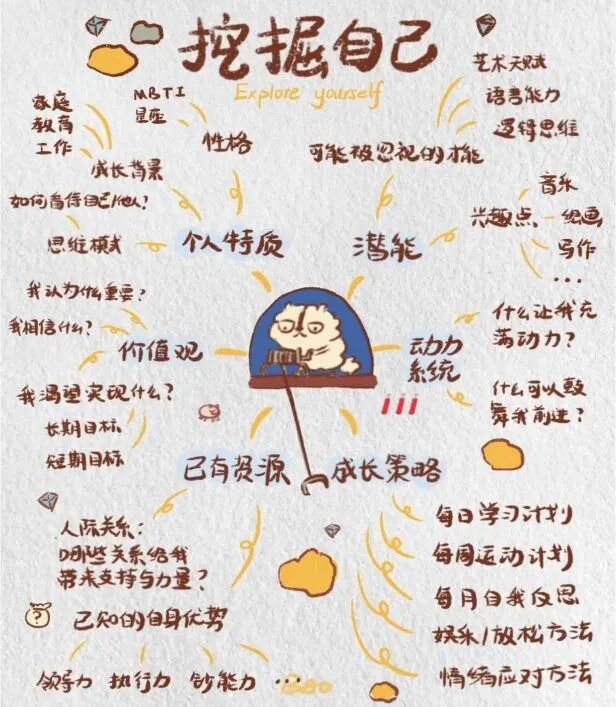 挖掘自己
Explore yourself
家庭
教育
工作
MBTI
星座
性格
成长背景
如何看待自己/他人?
思维模式
个人特质
艺术天赋
语言能力
逻辑思维
可能被忽视的才能
音乐
兴趣点
绘画
写作
...
潜能
我认为什么重要?
我相信什么?
价值观
我渴望实现什么?
长期目标
短期目标
什么让我充
满动力?
动力
系统
什么可以鼓
舞我前进?
已有资源
成长策略
人际关系:
哪些关系给我
带来支持与力量?
已知的自身优势
领导力
执行力
钞能力
每日学习计划
每周运动计划
每月自我反思
娱乐/放松方法
情绪应对方法